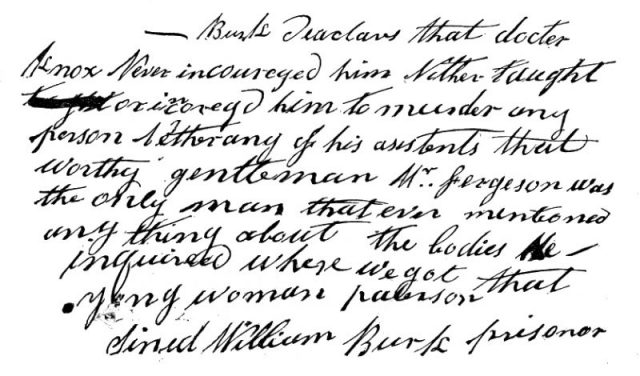 — Burk deaclars that docter
Knox Never incoureged him Nither taught
or incoregd him to murder any
person Netherany of his asistents that
worthy gentleman Mr. fergeson was
the only man that ever mentioned
any thing about the bodies He —
inquired where we got that
yong woman paterson
Sined William Burk prisonor